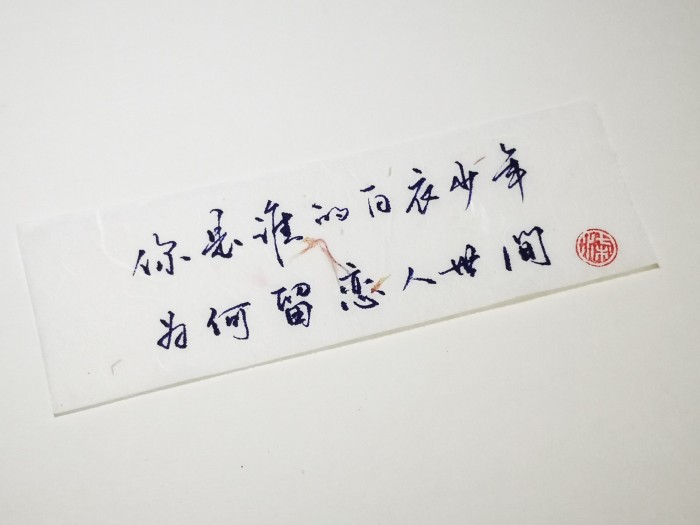 你是谁的白衣少年
为何留恋人世间